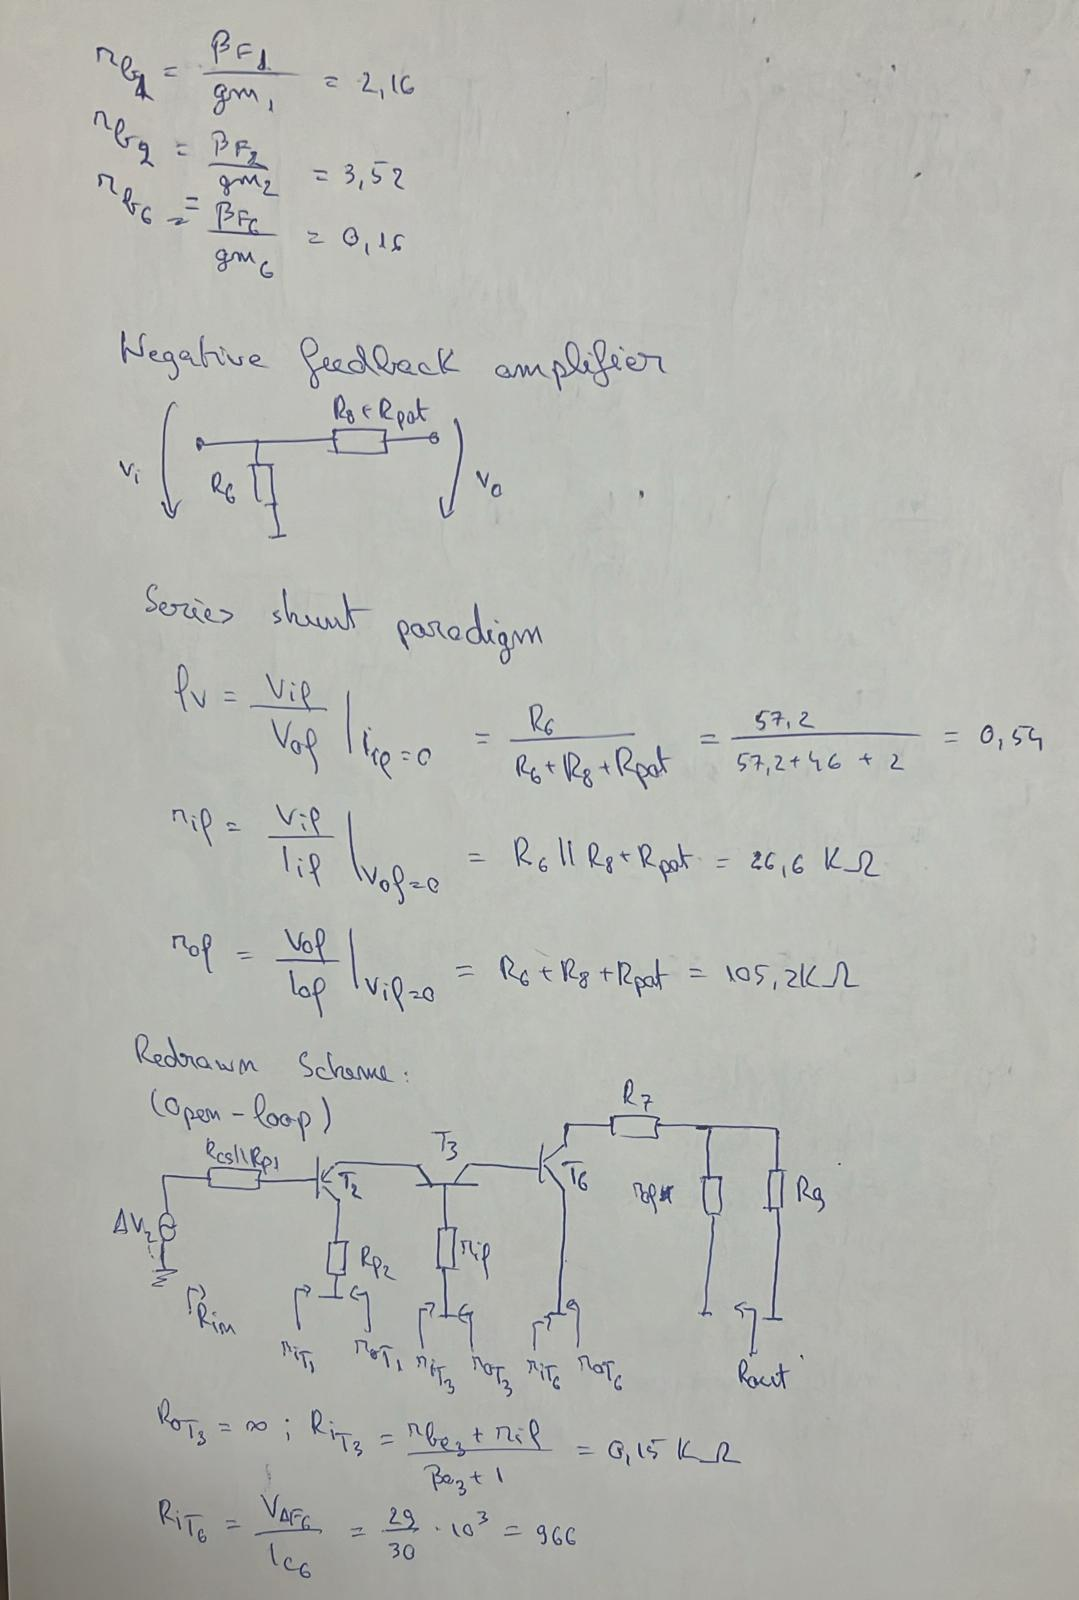 rbe1 = βF1 / gm1 = 2,16
rbe2 = βF2 / gm2 = 3,52
rbe6 = βF6 / gm6 = 0,15
Negative feedback amplifier
R8 + Rpot
Vi
R6
Vo
Series shunt paradigm
fv = Vif / Vof | Iif=0 = R6 / R6 + R8 + Rpot = 57,2 / 57,2+46 + 2 = 0,54
rif = Vif / Iif | Vof=0 = R6 || R8 + Rpot = 26,6 KΩ
rof = Vof / Iof | Vif=0 = R6 + R8 + Rpot = 105,2KΩ
Redrawn Scheme:
(Open-loop)
R7
Rcs||Rp1
T2
T3
T6
rof
R9
ΔV2
Rp2
rif
Rin
riT1
roT1
riT3
roT3
riT6
roT6
Rout
RoT3 = ∞ ; RiT3 = rbe3 + rif / βa3 + 1 = 0,15 KΩ
RiT6 = VAF6 / IC6 = 29 / 30 · 10³ = 966